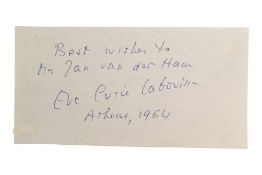 Best wishes to
Mr Jan van der Ham
Eve Curie Labouisse
Athens, 1964